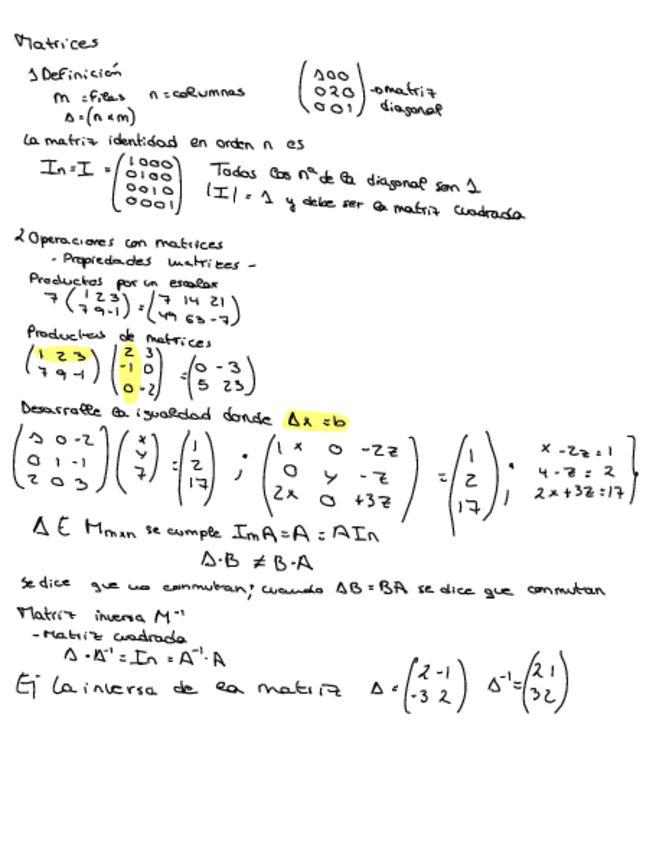 Matrices
1 Definición
m = filas n = columnas
A = (n x m)
(1 0 0
0 2 0
0 0 1) → matriz diagonal
La matriz identidad en orden n es
In = I = (1 0 0 0
0 1 0 0
0 0 1 0
0 0 0 1)
Todos los nº de la diagonal son 1
|I| = 1 y debe ser la matriz cuadrada
2 Operaciones con matrices
- Propiedades matrices -
Productos por un escalar
7 (1 2 3
7 9 -1) = (7 14 21
49 63 -7)
Productos de matrices
(1 2 3
7 9 -1) (2 3
-1 0
0 -2) = (0 -3
5 23)
Desarrolle la igualdad donde Ax = b
(1 0 -2
0 1 -1
2 0 3) (x
y
z) = (1
2
17) ; (1x 0 -2z
0 y -z
2x 0 +3z) = (1
2
17) ; x - 2z = 1
y - z = 2
2x + 3z = 17}
A ∈ Mmxn se cumple ImA = A = AIn
A·B ≠ B·A
Se dice que no conmutan; cuando AB = BA se dice que conmutan
Matriz inversa M⁻¹
- Matriz cuadrada
A · A⁻¹ = In = A⁻¹ · A
Ej La inversa de la matriz A = (2 -1
-3 2) A⁻¹ = (2 1
3 2)